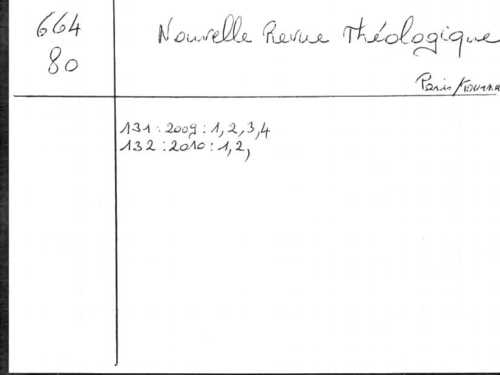 664
80
Nouvelle Revue Théologique
Paris/Tournai
131 : 2009 : 1, 2, 3, 4
132 : 2010 : 1, 2,